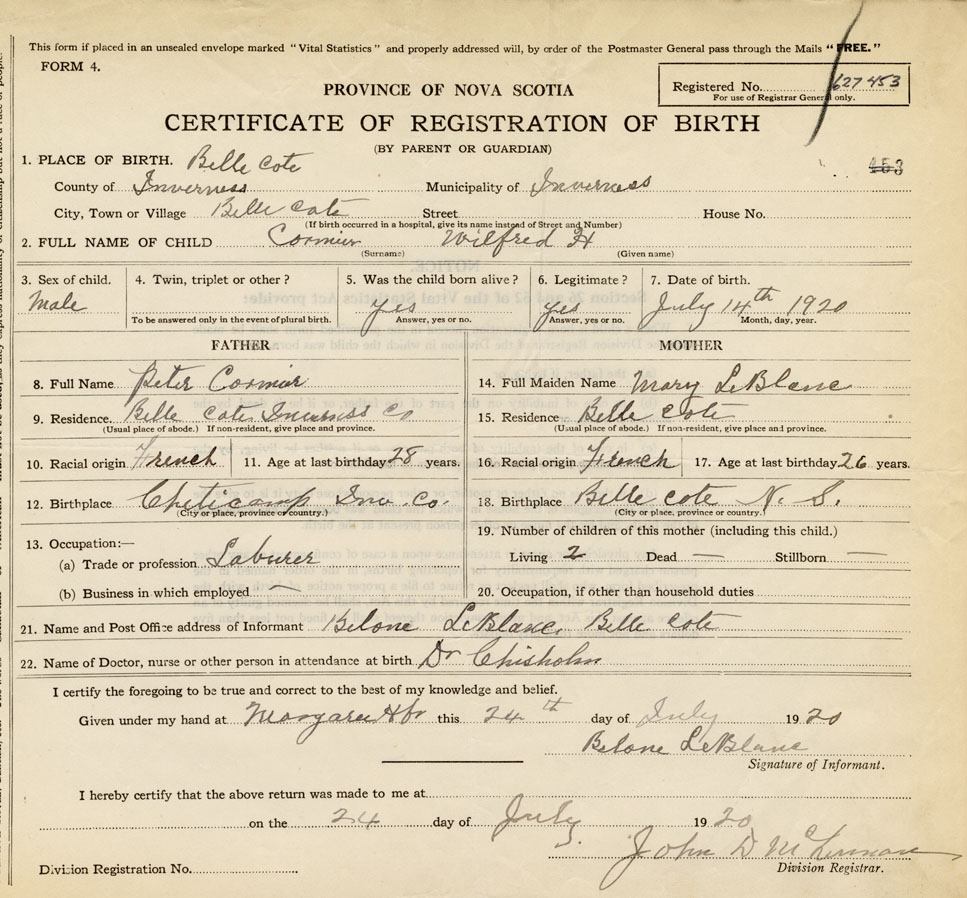 This form if placed in an unsealed envelope marked "Vital Statistics" and properly addressed will, by order of the Postmaster General pass through the Mails "FREE."
FORM 4.
Registered No. 627453
For use of Registrar General only.
PROVINCE OF NOVA SCOTIA
CERTIFICATE OF REGISTRATION OF BIRTH
(BY PARENT OR GUARDIAN)
453
1. PLACE OF BIRTH. Belle Cote
County of Inverness Municipality of Inverness
City, Town or Village Belle Cote Street House No.
(If birth occurred in a hospital, give its name instead of Street and Number)
2. FULL NAME OF CHILD Cormier Wilfred H
(Surname) (Given name)
3. Sex of child. 4. Twin, triplet or other? 5. Was the child born alive? 6. Legitimate? 7. Date of birth.
Male yes yes July 14th 1920
To be answered only in the event of plural birth. Answer, yes or no. Answer, yes or no. Month, day, year.
FATHER MOTHER
8. Full Name Peter Cormier 14. Full Maiden Name Mary LeBlanc
9. Residence Belle Cote Inverness Co 15. Residence Belle Cote
(Usual place of abode.) If non-resident, give place and province. (Usual place of abode.) If non-resident, give place and province.
10. Racial origin French 11. Age at last birthday 28 years. 16. Racial origin French 17. Age at last birthday 26 years.
12. Birthplace Cheticamp Inv. Co. 18. Birthplace Belle Cote N. S.
(City or place, province or country.) (City or place, province or country.)
13. Occupation:— 19. Number of children of this mother (including this child.)
(a) Trade or profession Laburer Living 2 Dead — Stillborn —
(b) Business in which employed — 20. Occupation, if other than household duties
21. Name and Post Office address of Informant Belone LeBlanc, Belle Cote
22. Name of Doctor, nurse or other person in attendance at birth Dr Chisholm
I certify the foregoing to be true and correct to the best of my knowledge and belief.
Given under my hand at Margaree Hbr this 24th day of July 1920
Belone LeBlanc
Signature of Informant.
I hereby certify that the above return was made to me at
on the 24 day of July 1920
John D
Division Registration No. Division Registrar.